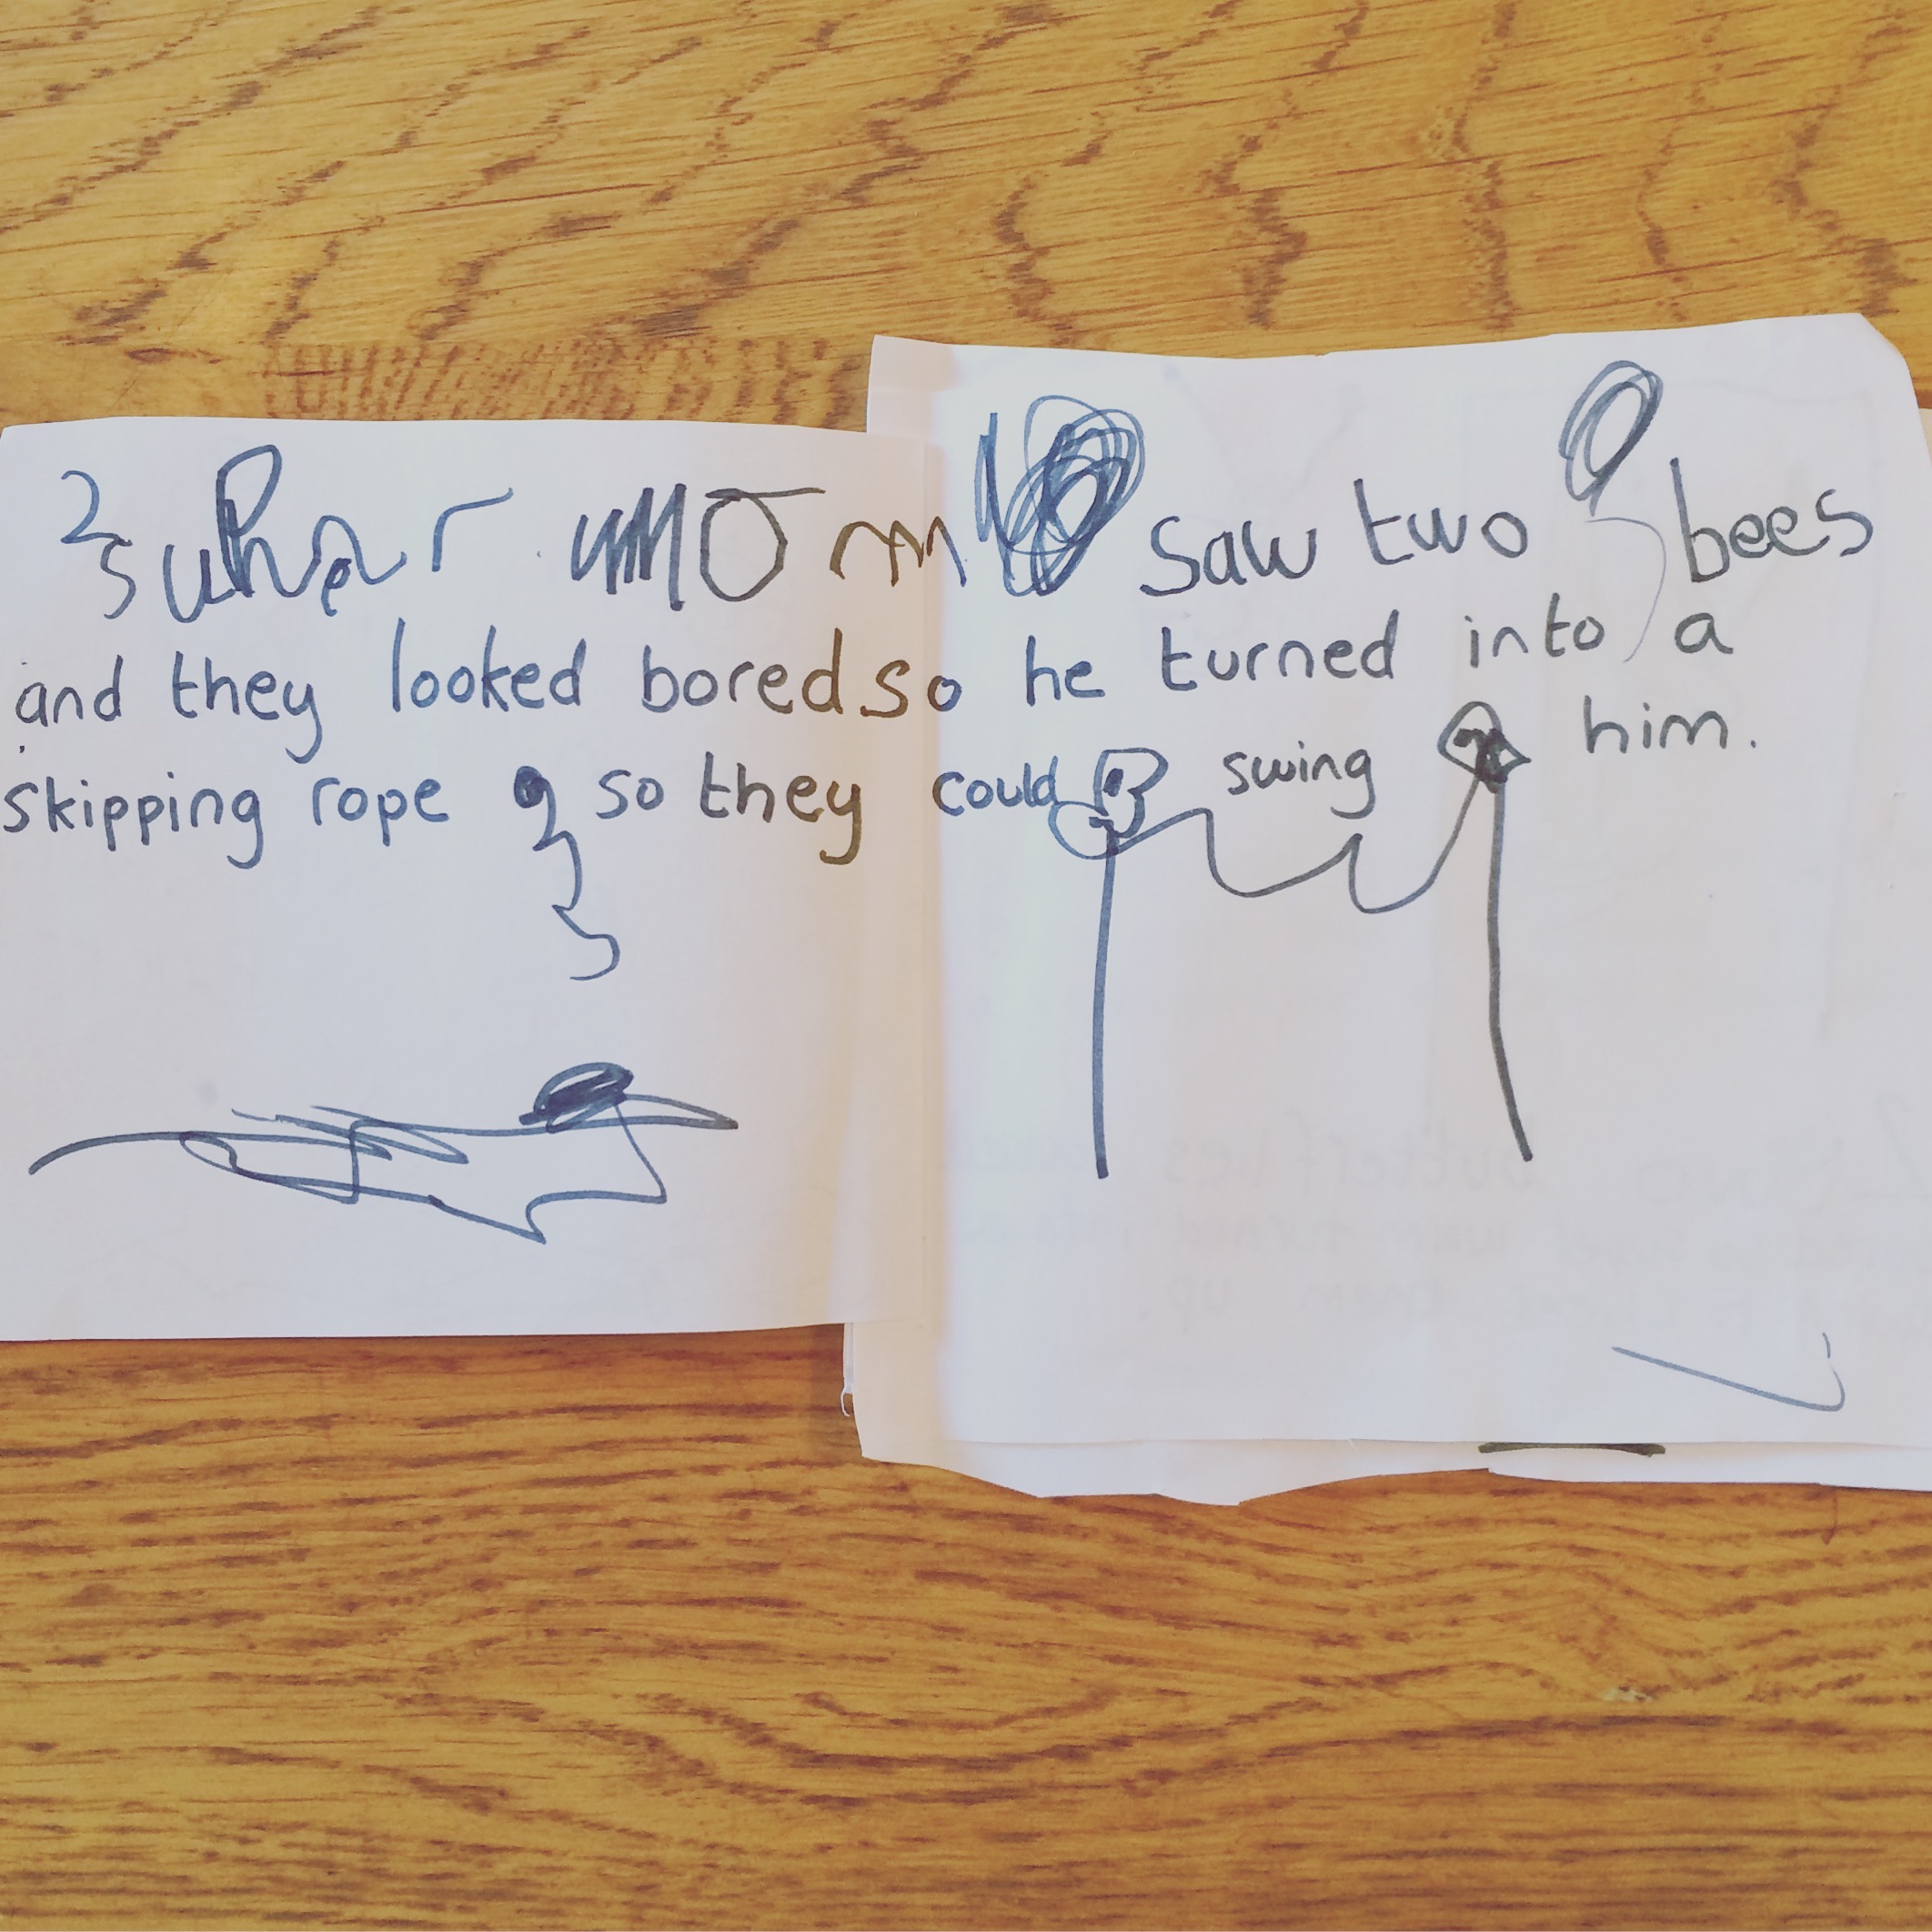 2 super worm saw two bees
and they looked bored so he turned into a
skipping rope so they could swing him.